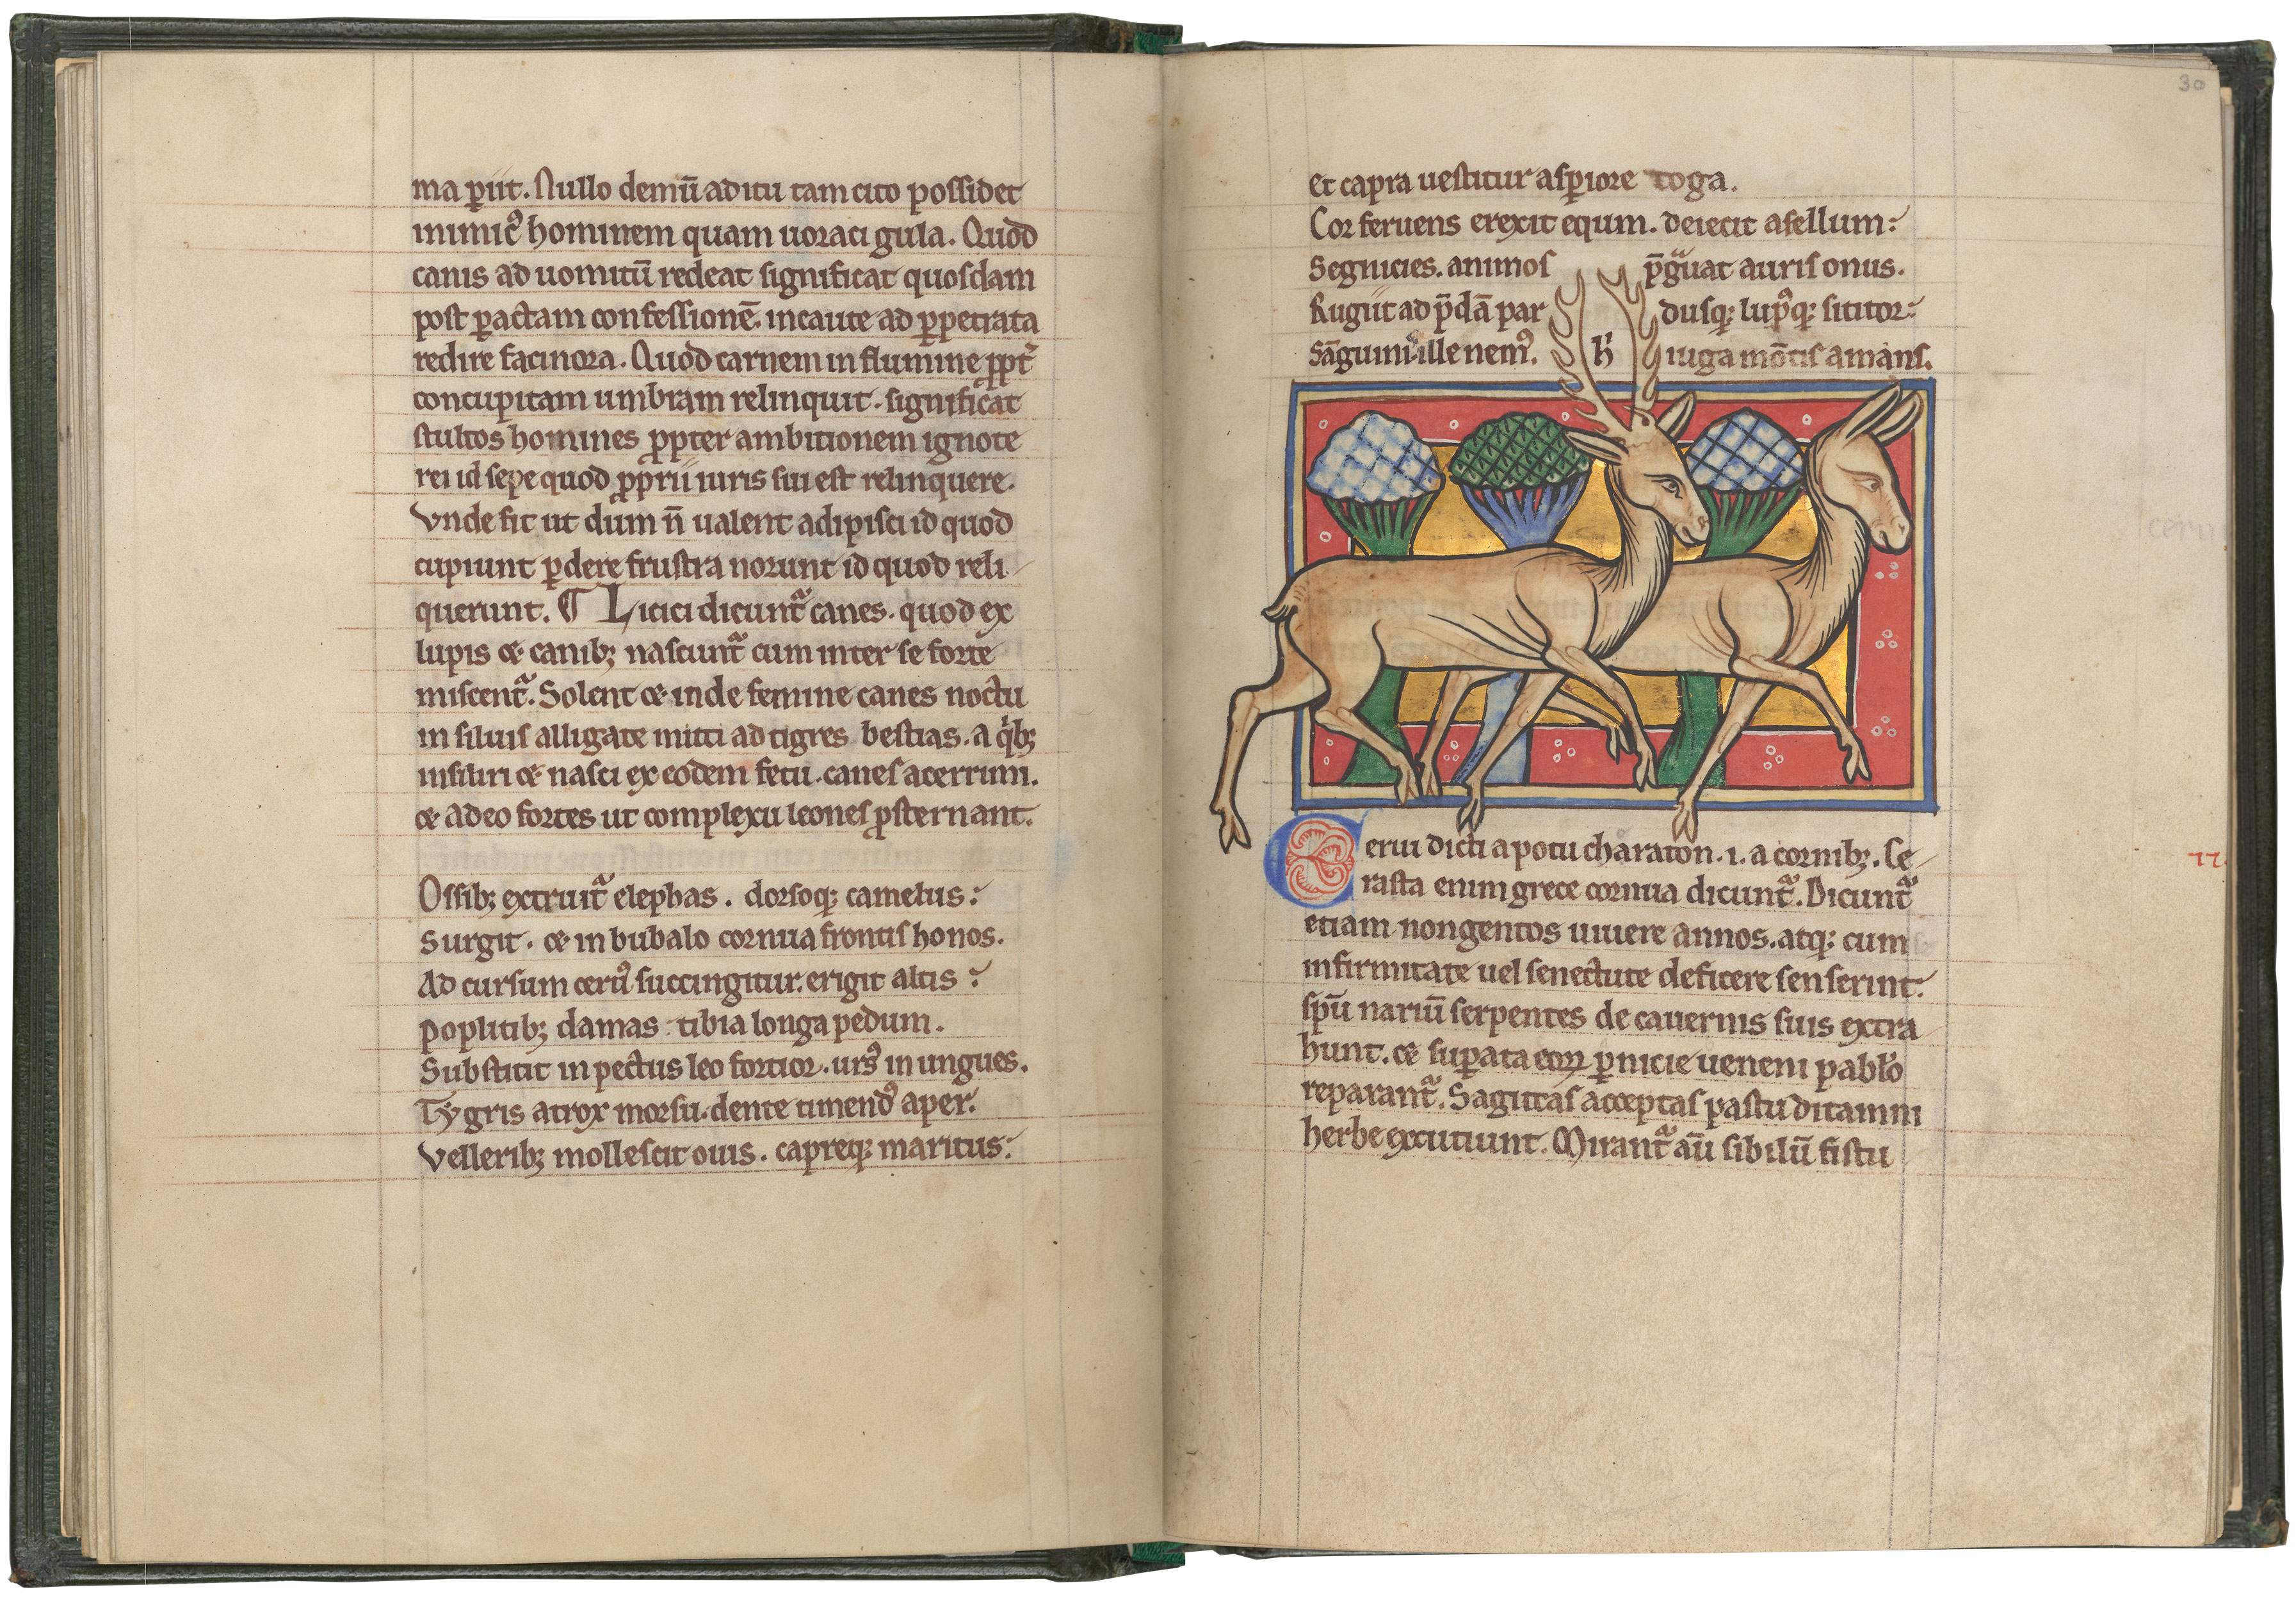 ma ꝑiit. Nullo demū aditu tam cito possidet
inimicꝰ hominem quam uoraci gula. Quod
canis ad uomitū redeat significat quosdam
post ꝑactam confessionē. incaute ad ꝑpetrata
redire facinora. Quod carnem in flumine ꝓpt̛
concupitam umbram relinquit. significat
stultos homines ꝓpter ambitionem ignote
rei id sepe quod ꝓprii iuris sui est relinquere.
Vnde fit ut dum n̄ ualent adipisci id quod
cupiunt ꝑdere frustra norunt id quod reli
querunt. ¶ Licici dicuntᷓ canes. quod ex
lupis ⁊ canibꝫ nascuntᷓ cum inter se forte
miscentᷓ. Solent ⁊ inde femine canes noctu
in siluis alligate mitti ad tigres bestias. a qͥbꝫ
insiliri ⁊ nasci ex eodem fetu. canes acerrimi.
⁊ adeo fortes ut complexu leones ꝓsternant.
Ossibꝫ extruitᷓ elephas. dorsoqꝫ camelus:
Surgit. ⁊ in bubalo cornua frontis honos.
Ad cursum ceruꝰ succingitur. erigit altis:
Poplitibꝫ damas: tibia longa pedum.
Substitit in pectus leo fortior. ursꝰ in ungues.
Tygris atrox morsu. dente timendꝰ aper.
Velleribꝫ mollescit ouis. capreqꝫ maritus:
30
et capra uestitur asꝑiore toga.
Cor feruens erexit equm. deiecit asellum:
Segnicies. animos p̄gᷓuat auris onus.
Rugiit ad p̄dā par dusqꝫ lupꝰqꝫ sititor:
Sāguinͥ ille nemꝰ. h̛ iuga mōtis amans.
Cerui dicti a potu charaton. i. a cornibꝫ. Ce
rasta enim grece cornua dicuntᷓ. Dicuntᷓ
etiam nongentos uiuere annos. atqꝫ cum
infirmitate uel senectute deficere senserint.
spū nariū serpentes de cauernis suis extra
hunt. ⁊ suꝑata eoꝝ ꝑnicie ueneni pablͦo
reparantᷓ. Sagittas acceptas pastu ditamni
herbe excutiunt. Mirantᷓ aū sibilū fistu